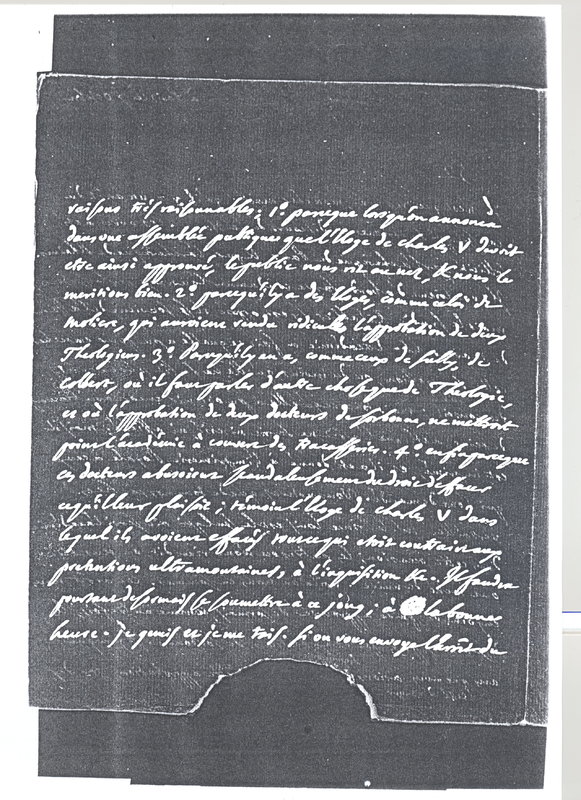 raisons très raisonnables; 1° parceque lorsqu'on annonça
dans une assemblée publique que l'Eloge de charles V devoit
etre ainsi approuvé, le public nous rit au nez, & nous le
meritions bien. 2° parcequ'il y a des Eloges, comme celui de
moliere, qui auroient rendu ridicule l'approbation de deux
Theologiens. 3° Parcequ'il y en a, comme ceux de sully, de
colbert, où il faut parler d'autre chose que de Theologie,
et où l'approbation de deux docteurs de sorbonne, ne mettroit
point l'académie à couvert des tracasseries. 4° enfin parceque
ces docteurs abusoient scandaleusement du droit d'effacer
ce qu'il leur plaisoit; témoin l'Eloge de charles V dans
lequel ils avoient effacé tout ce qui etoit contraire aux
prétentions ultramontaines, à l'inquisition &c. Il faudra
pourtant desormais se soumettre à ce joug; à la bonne
heure. je gemis et je me tais. si on vous envoye l'arrêt du